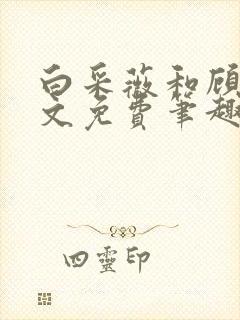 白采薇和顾
文免费笔趣
四靈印